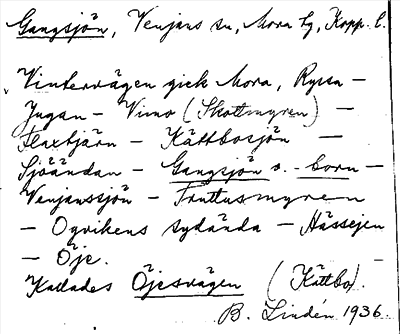 Gangsjön, Venjans sn, Mora tg, Kopp. l.
Vintervägen gick Mora, Ryssa –
Jugan – Vimo (Skottmyren) –
Flaxtjärn – Kättbosjön –
Sjöändan – Gangsjön o. -born –
Venjanssjön – Fruttusmyren
– Ogvikens sydända – Hässejen
– Öje. –
Kallades Öjesvägen (Kättbo).
B. Lindén 1936.